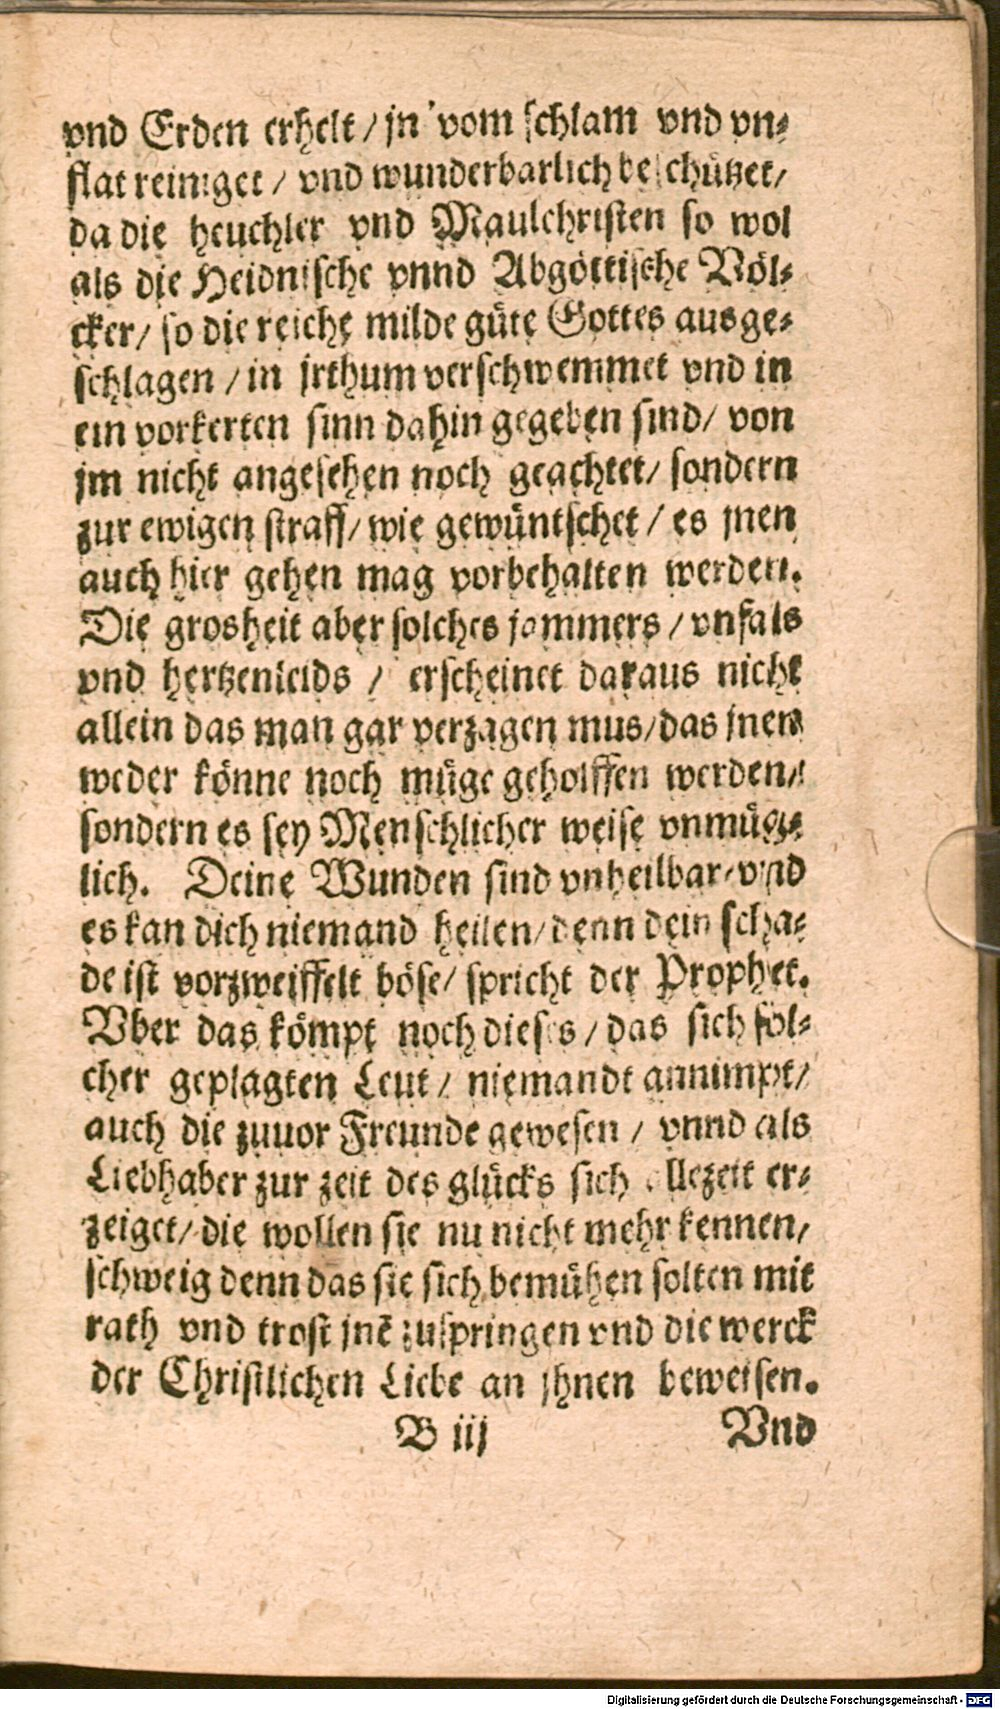 vnd Erden erhelt / jn vom schlam vnd vn⸗
flat reiniget / vnd wunderbarlich beschützet /
da die heuchler vnd Maulchristen so wol
als die Heidnische vnnd Abgöttische Völ⸗
cker / so die reiche milde güte Gottes ausge⸗
schlagen / in jrthum verschwemmet vnd in
ein vorkerten sinn dahin gegeben sind / von
jm nicht angesehen noch geachtet / sondern
zur ewigen straff / wie gewüntschet / es jnen
auch hier gehen mag vorbehalten werden.
Die grosheit aber solches jammers / vnfals
vnd hertzenleids / erscheinet daraus nicht
allein das man gar verzagen mus / das jnen
weder könne noch müge geholffen werden /
sondern es sey Menschlicher weise vnmüg⸗
lich. Deine Wunden sind vnheilbar / vnd
es kan dich niemand heilen / denn dein scha⸗
de ist vorzweiffelt böse / spricht der Prophet.
Vber das kömpt noch dieses / das sich söl⸗
cher geplagten Leut / niemandt annimpt /
auch die zuuor Freunde gewesen / vnnd als
Liebhaber zur zeit des glücks sich allezeit er⸗
zeiget / die wollen sie nu nicht mehr kennen /
schweig denn das sie sich bemühen solten mit
rath vnd trost jnē zuspringen vnd die werck
der Christlichen Liebe an jhnen beweisen.
B iij Vnd
Digitalisierung gefördert durch die Deutsche Forschungsgemeinschaft - DFG